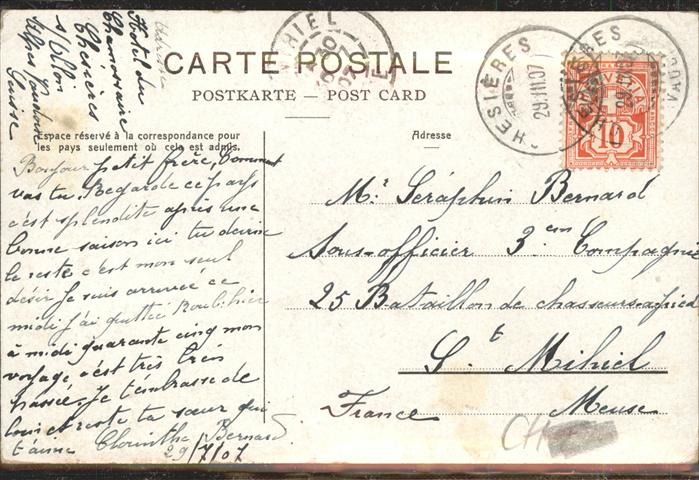 Adresse
Hotel du
Chamossaire
Chesières
s/Ollon
Suisse
MIHIEL
30
07
CARTE POSTALE
POSTKARTE — POST CARD
Espace réservé à la correspondance pour
les pays seulement où cela est admis.
Adresse
CHESIÈRES
29.III.07
HELVETIA
10
Bonjour petit frère, Comment
vas tu. Regarde ce pays
c'est splendite après une
bonne saison ici tu devine
le reste c'est mon seul
désir. Je suis arrivée ce
midi j'ai quittée
à midi quarante cinq mon
voyage c'est très bien
passée. Je t'embrasse de
loin et reste ta sœur qui
t'aime Bernard
29/7/07
Mr Séraphin Bernard
Sous-officier 3em Compagnie
25 Bataillon de chasseurs apied
St Mihiel
France Meuse
CH